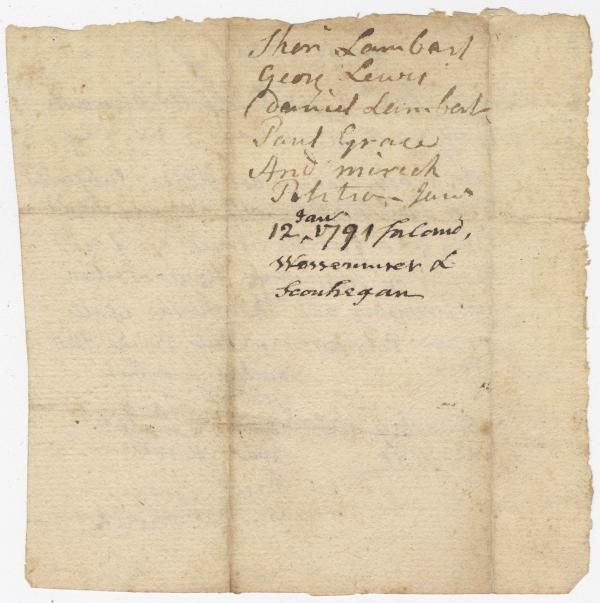 Sher Lambart
Georg Lewis
Daniel Lambert
Paul Grace
And mirick
Petition Janr
12 Janr 1791 for land,
Wesserunset &
Scouhegan